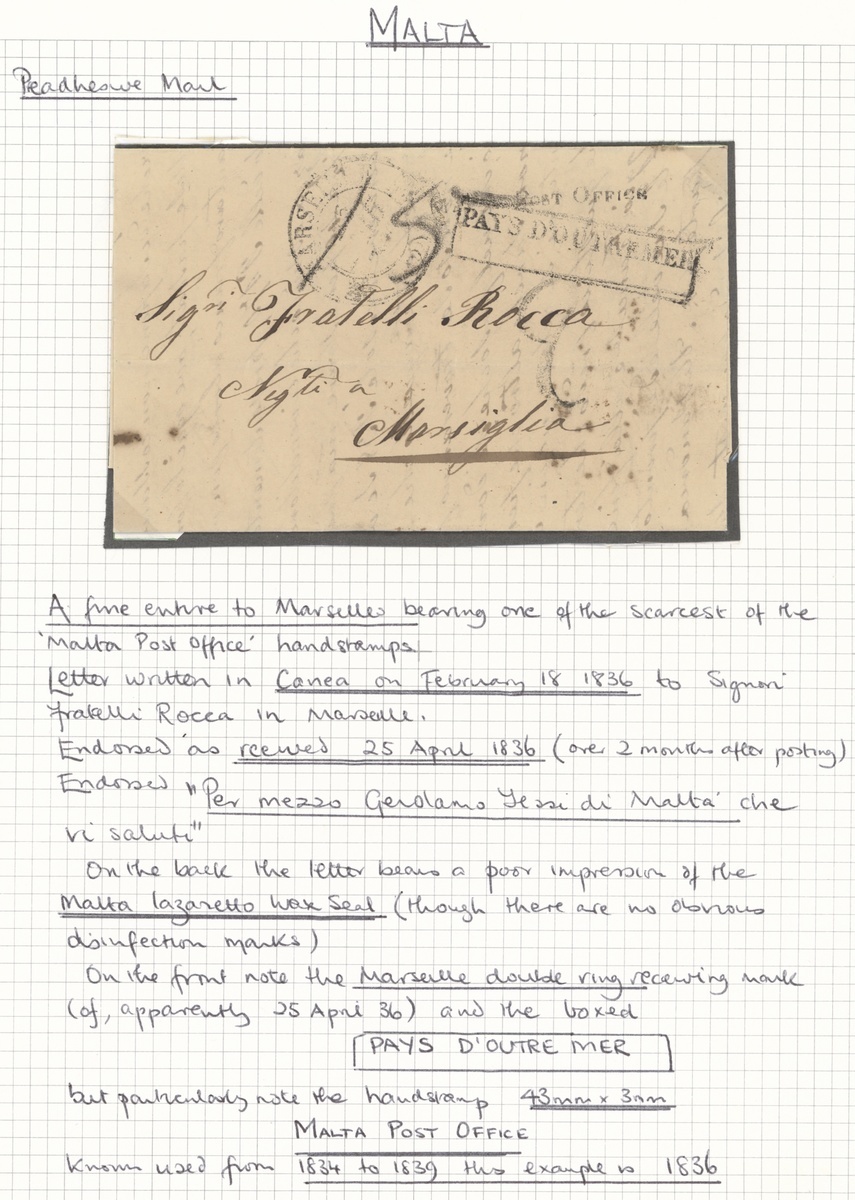 MALTA
Preadhesive Mail
POST OFFICE
PAYS D'OUTRE MER
Sigri Fratelli Rocca
Marsiglia
A fine entire to Marseilles bearing one of the scarcest of the
'Malta Post Office' handstamps
Letter written in Canea on February 18 1836 to Signori
Fratelli Rocca in Marseille.
Endorsed as received 25 April 1836 (over 2 months after posting)
Endorsed "Per mezzo Gerolamo Tessi di Malta che
vi saluti"
On the back the letter bears a poor impression of the
Malta lazaretto wax seal (though there are no obvious
disinfection marks)
On the front note the Marseille double ring receiving mark
(of, apparently 25 April 36) and the boxed
PAYS D'OUTRE MER
but particularly note the handstamp 43mm x 3mm
MALTA POST OFFICE
Known used from 1834 to 1839 this example is 1836